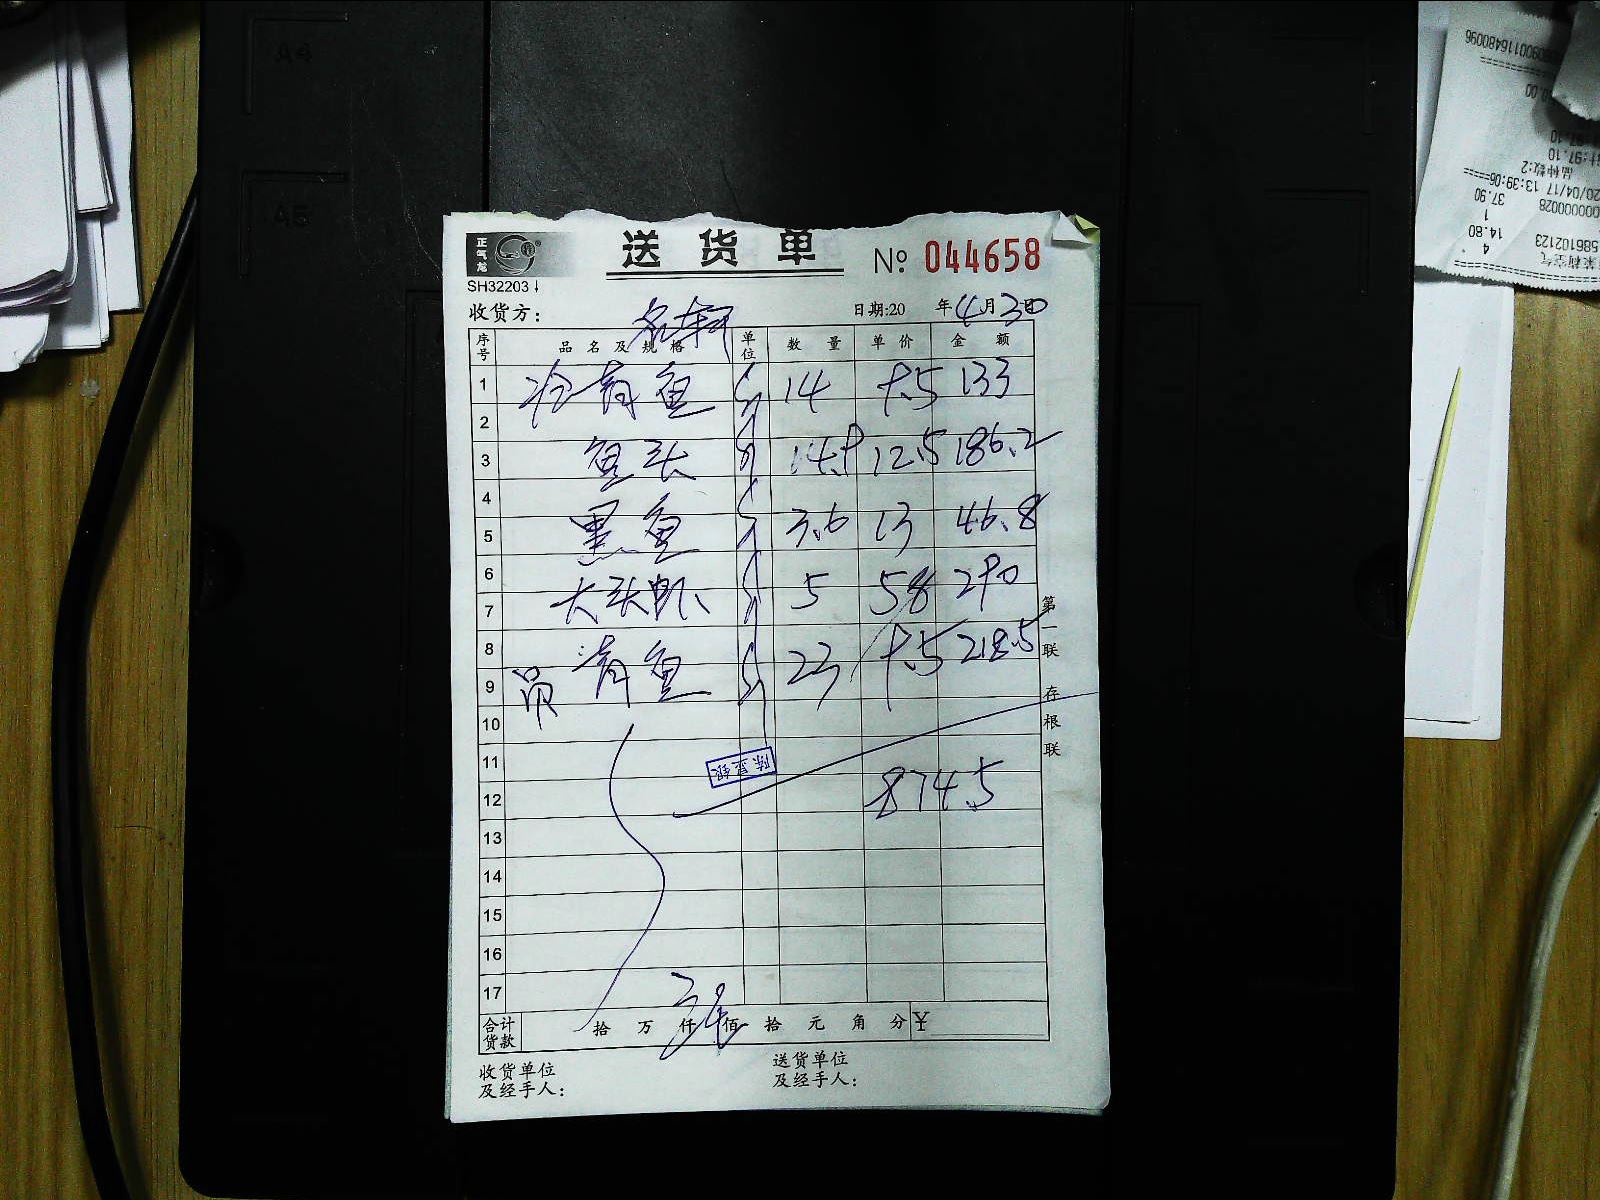 A4
A5
正气龙
送货单
№ 044658
SH32203↓
收货方：名轩
日期:20 年4月30日
序号 品名及规格 单位 数量 单价 金额
1 冷青鱼 14 9.5 133
2
3 鱼头 14.9 12.5 186.2
4
5 黑鱼 3.6 13 46.8
6
7 大头 5 58 290
8 青鱼 23 9.5 218.5
9 员
10
11
12 874.5
13
14
15
16
17
合计货款 拾 万 仟 佰 拾 元 角 分 ¥
收货单位
及经手人：
送货单位
及经手人：
第一联 存根联
0900116480096
计:97.10
品种数:2
20/04/17 13:39:06
37.90
0000000028
1
14.80
4
586102123